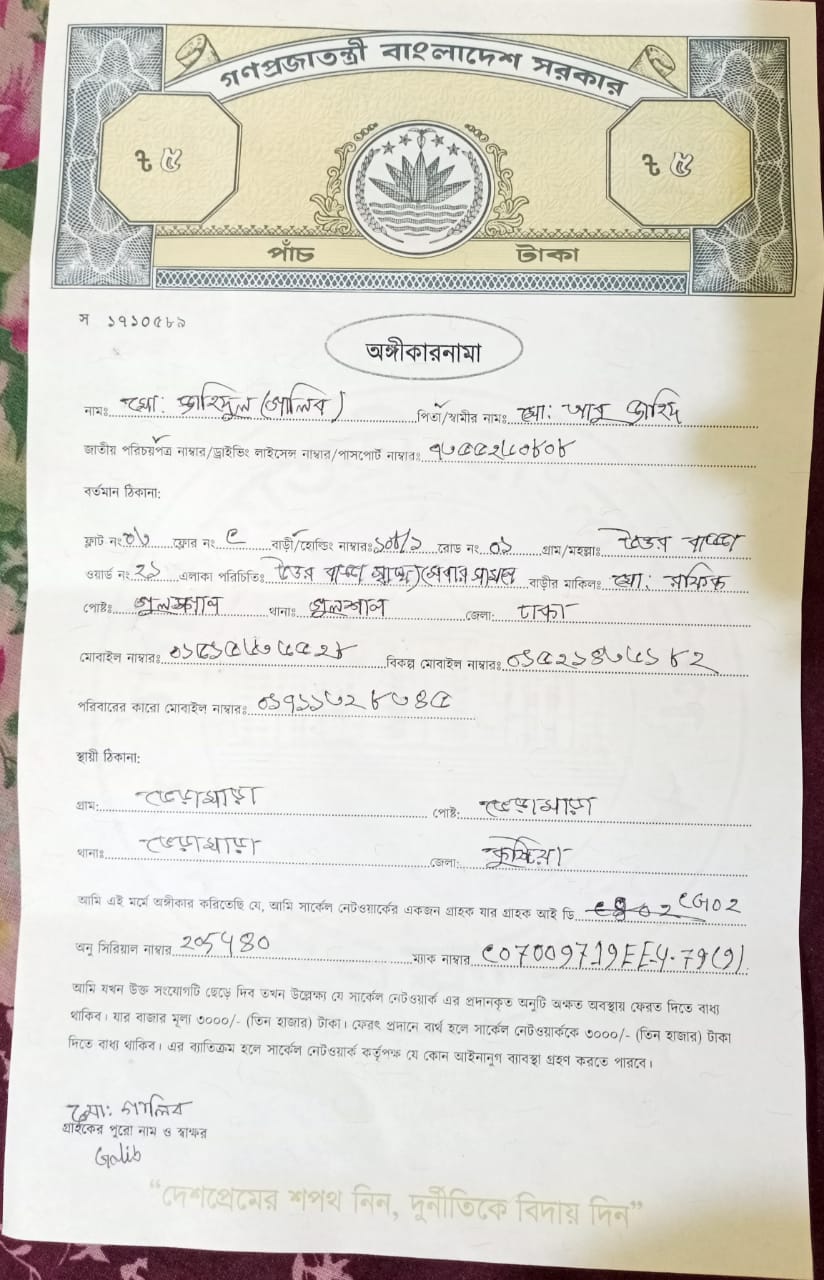 গণপ্রজাতন্ত্রী বাংলাদেশ সরকার
৳ ৫ ৳ ৫
পাঁচ টাকা
স ১৭১০৫৮৯
অঙ্গীকারনামা
নামঃ মো: জাহিদুল (গালিব) পিতা/স্বামীর নাম: মো: আবু জাহিদ
জাতীয় পরিচয়পত্র নাম্বার/ড্রাইভিং লাইসেন্স নাম্বার/পাসপোর্ট নাম্বারঃ
বর্তমান ঠিকানা:
ফ্লাট নং ফ্লোর নং বাড়ী/হোল্ডিং নাম্বারঃ রোড নং ০১ গ্রাম/মহল্লাঃ উত্তর বাড্ডা
ওয়ার্ড নং ২১ এলাকা পরিচিতিঃ উত্তর বাড্ডা বাড়ীর মালিকঃ মো: রফিক
পোষ্টঃ গুলশান থানাঃ গুলশান জেলা: ঢাকা
মোবাইল নাম্বারঃ বিকল্প মোবাইল নাম্বারঃ
পরিবারের কারো মোবাইল নাম্বারঃ
স্থায়ী ঠিকানা:
গ্রাম: ভেড়ামারা পোষ্ট: ভেড়ামারা
থানাঃ ভেড়ামারা জেলা: কুষ্টিয়া
আমি এই মর্মে অঙ্গীকার করিতেছি যে, আমি সার্কেল নেটওয়ার্কের একজন গ্রাহক যার গ্রাহক আই ডি
অনু সিরিয়াল নাম্বার ম্যাক নাম্বার
আমি যখন উক্ত সংযোগটি ছেড়ে দিব তখন উল্লেক্ষ্য যে সার্কেল নেটওয়ার্ক এর প্রদানকৃত অনুটি অক্ষত অবস্থায় ফেরত দিতে বাধ্য
থাকিব। যার বাজার মূল্য ৩০০০/- (তিন হাজার) টাকা। ফেরৎ প্রদানে ব্যর্থ হলে সার্কেল নেটওয়ার্ককে ৩০০০/- (তিন হাজার) টাকা
দিতে বাধ্য থাকিব। এর ব্যাতিক্রম হলে সার্কেল নেটওয়ার্ক কর্তৃপক্ষ যে কোন আইনানুগ ব্যাবস্থা গ্রহণ করতে পারবে।
মো: গালিব
গ্রাহকের পুরো নাম ও স্বাক্ষর
Galib
“দেশপ্রেমের শপথ নিন, দুর্নীতিকে বিদায় দিন”